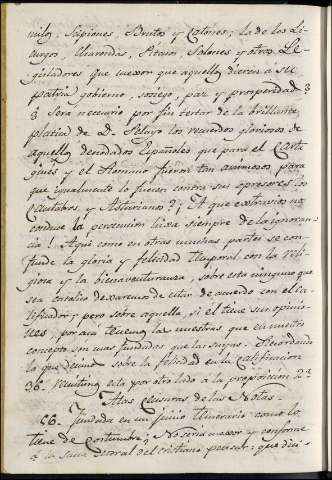 milos, Scipiones, Brutos y Catones; la de los Li-
curgos, Charondas, Pitacos, Solones, y otros Le-
gisladores que mexor que aquellos dieran á su
patria gobierno, sosiego, paz y prosperidad?
¿Será necesario por fin textar de la brillante
platica de D. Pelayo los recuerdos gloriosos de
aquellos denodados Españoles que para el Carta-
gines y el Romano fueron tan animosos para
que igualmente lo fueran contra sus opresores los
Cantabros, y Asturianos?; ¡A que extravios no
conduce la prevencion hixa siempre de la ignoran-
cia! Aqui como en otras muchas partes se con-
funde la gloria y felicidad temporal con la reli-
giosa y la bienaventuranza, sobre esta ninguno que
sea Catolico dexaremos de estar de acuerdo con el ca-
lificador, y pero sobre aquella, si él tiene sus opinio-
nes, por acá tenemos las nuestras que en nuestro
concepto son mas fundadas que las suyas. Recordando
lo que decimos sobre la felicidad en la Calificacion
36. Neutuno está por otro lado á la proposicion 2ª
Alas Censuras de las Notas.
66. Fundada en un juicio temerario como lo
tiene de costumbre, ¿No seria mexor y conforme
á la sana moral del cristiano pensar: que diri-